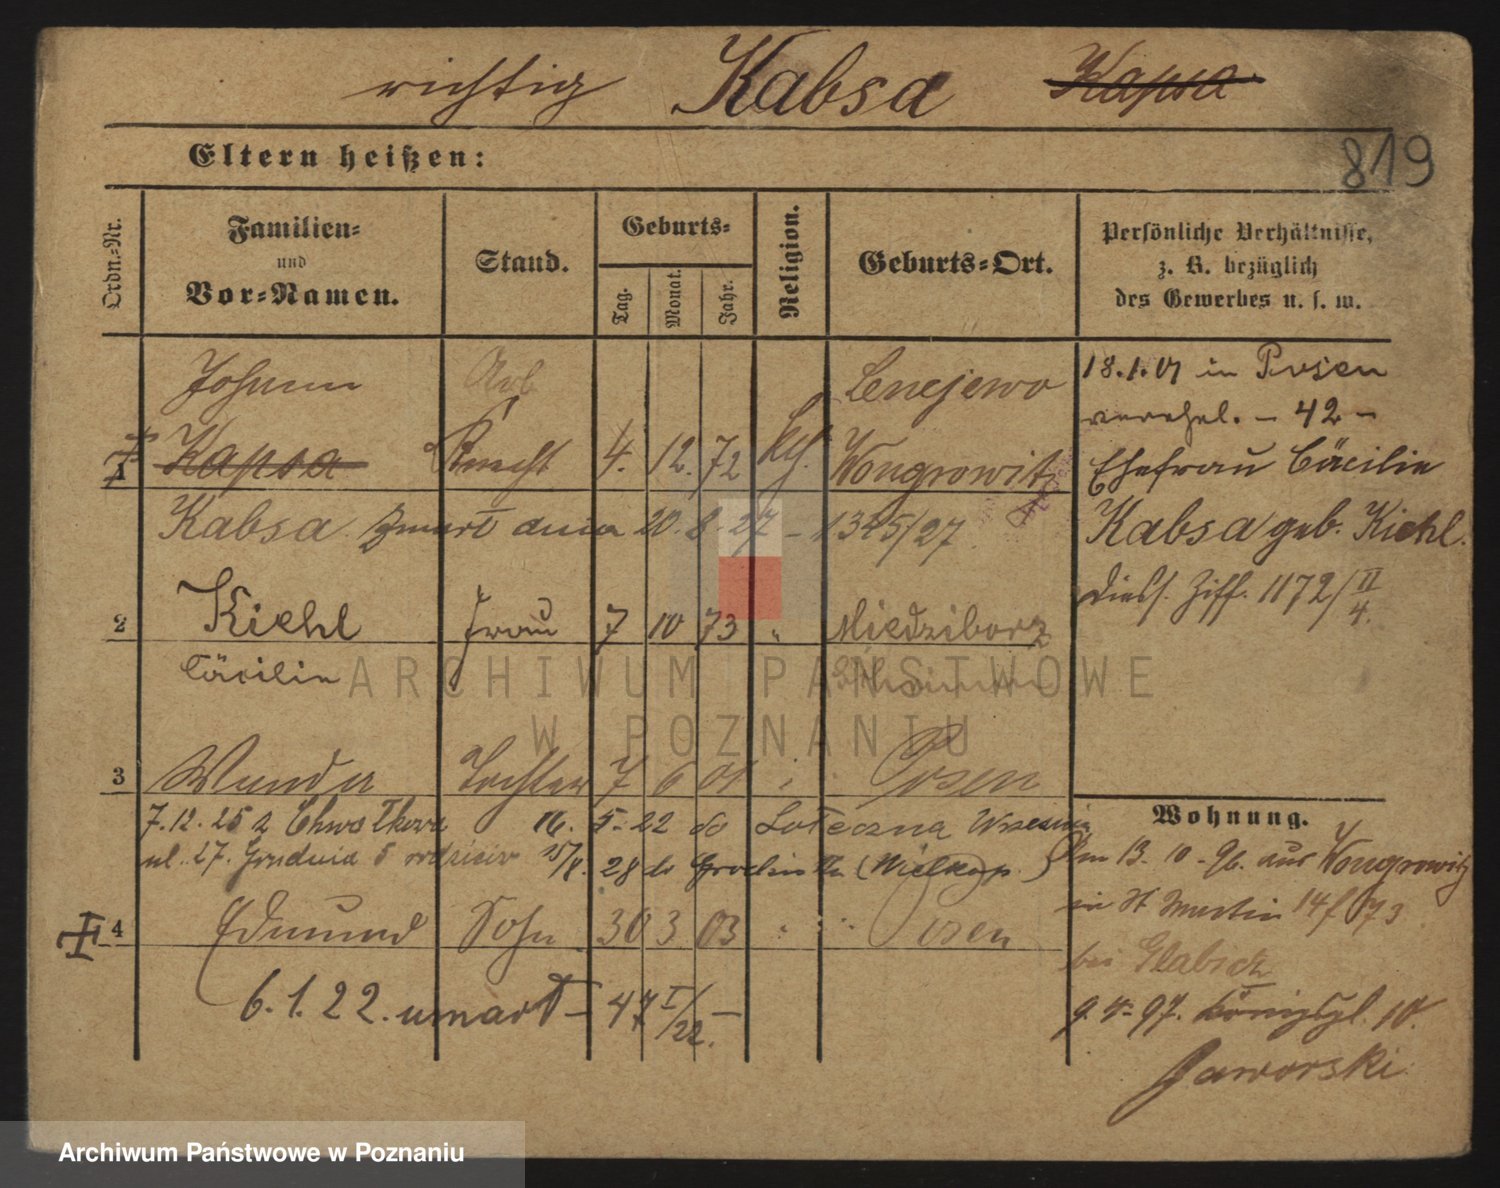 richtig Kabsa Kapsa
819
Eltern heißen:
Ordn.-Nr.
Familien-
und
Vor-Namen.
Stand.
Geburts-
Tag.
Monat.
Jahr.
Religion.
Geburts-Ort.
Persönliche Verhältnisse,
z. B. bezüglich
des Gewerbes u. s. w.
Johann Arb Lenejewo
1 Kapsa Knecht 4. 12. 72 kth. Wongrowitz
Kabsa Zmarł dnia 20. 8. 27 - 1345/27
2 Kiehl Frau 7 10 73 " Miedziborz
Cäcilie
3 Wanda Tochter 7 6 01 Posen
7.12.25 z Chwałkowa 16. 5. 22 do Łołeczna Września
ul. 27. Grudnia 5 15/8. 28 do Grodziska (Wielkop.)
4 Edmund Sohn 30 3 03 " " Posen
6.1.22. umarł - 47 I/22. -
18.1.01 in Posen
verehel. - 42 -
Ehefrau Cäcilie
Kabsa geb. Kiehl.
Diess. Ziff. 1172/II
4.
Wohnung.
Am 13. 10. 96. aus Wongrowitz
in St Martin 14
bei Glabisz
9. 4. 97. Königspl. 10.
Jaworski
ARCHIWUM PAŃSTWOWE
W POZNANIU
Archiwum Państwowe w Poznaniu